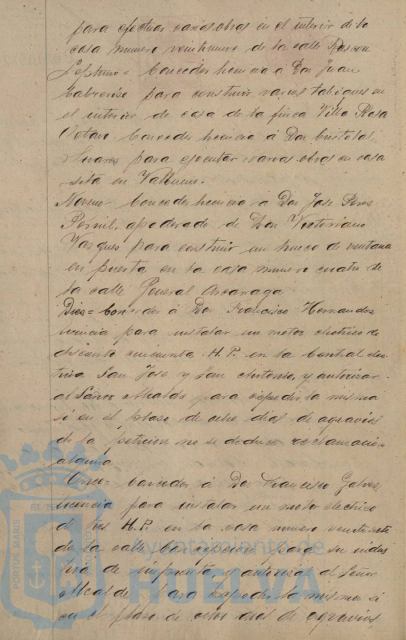 para efectuar varias obras en el interior de la
casa numero veintinueve de la calle Rascon
Septimo = Conceder licencia á Don Juan
para construir varios tabiques en
el interior de casa de la finca Villa Rosa
Octavo Conceder licencia á Don Cristobal
Suares para ejecutar varias obras en casa
sita en
Noveno Conceder licencia á Don Jose Peres
apoderado de Don Victoriano
Vasques para construir un hueco de ventana
en puerta en la casa numero cuatro de
la calle General
Dies = Conceder á Don Francisco Hernandes
licencia para instalar un motor electrico de
doscientos cincuenta H.P. en la Central elec-
trica San Jose y San Antonio, y autorizar
al Señor Alcalde para espedir la misma
si en el plaso de ocho dias de agravios
de la peticion no se deduce reclamacion
alguna
Once Conceder á Don Francisco Galves
licencia para instalar un motor electrico
de dos H.P. en la casa numero
de la calle Concepcion para su indus
tria de imprenta y autorizar al Señor
Alcalde para espedir la misma si
en el plaso de ocho dias de agravios
Ayuntamiento de
HUELVA